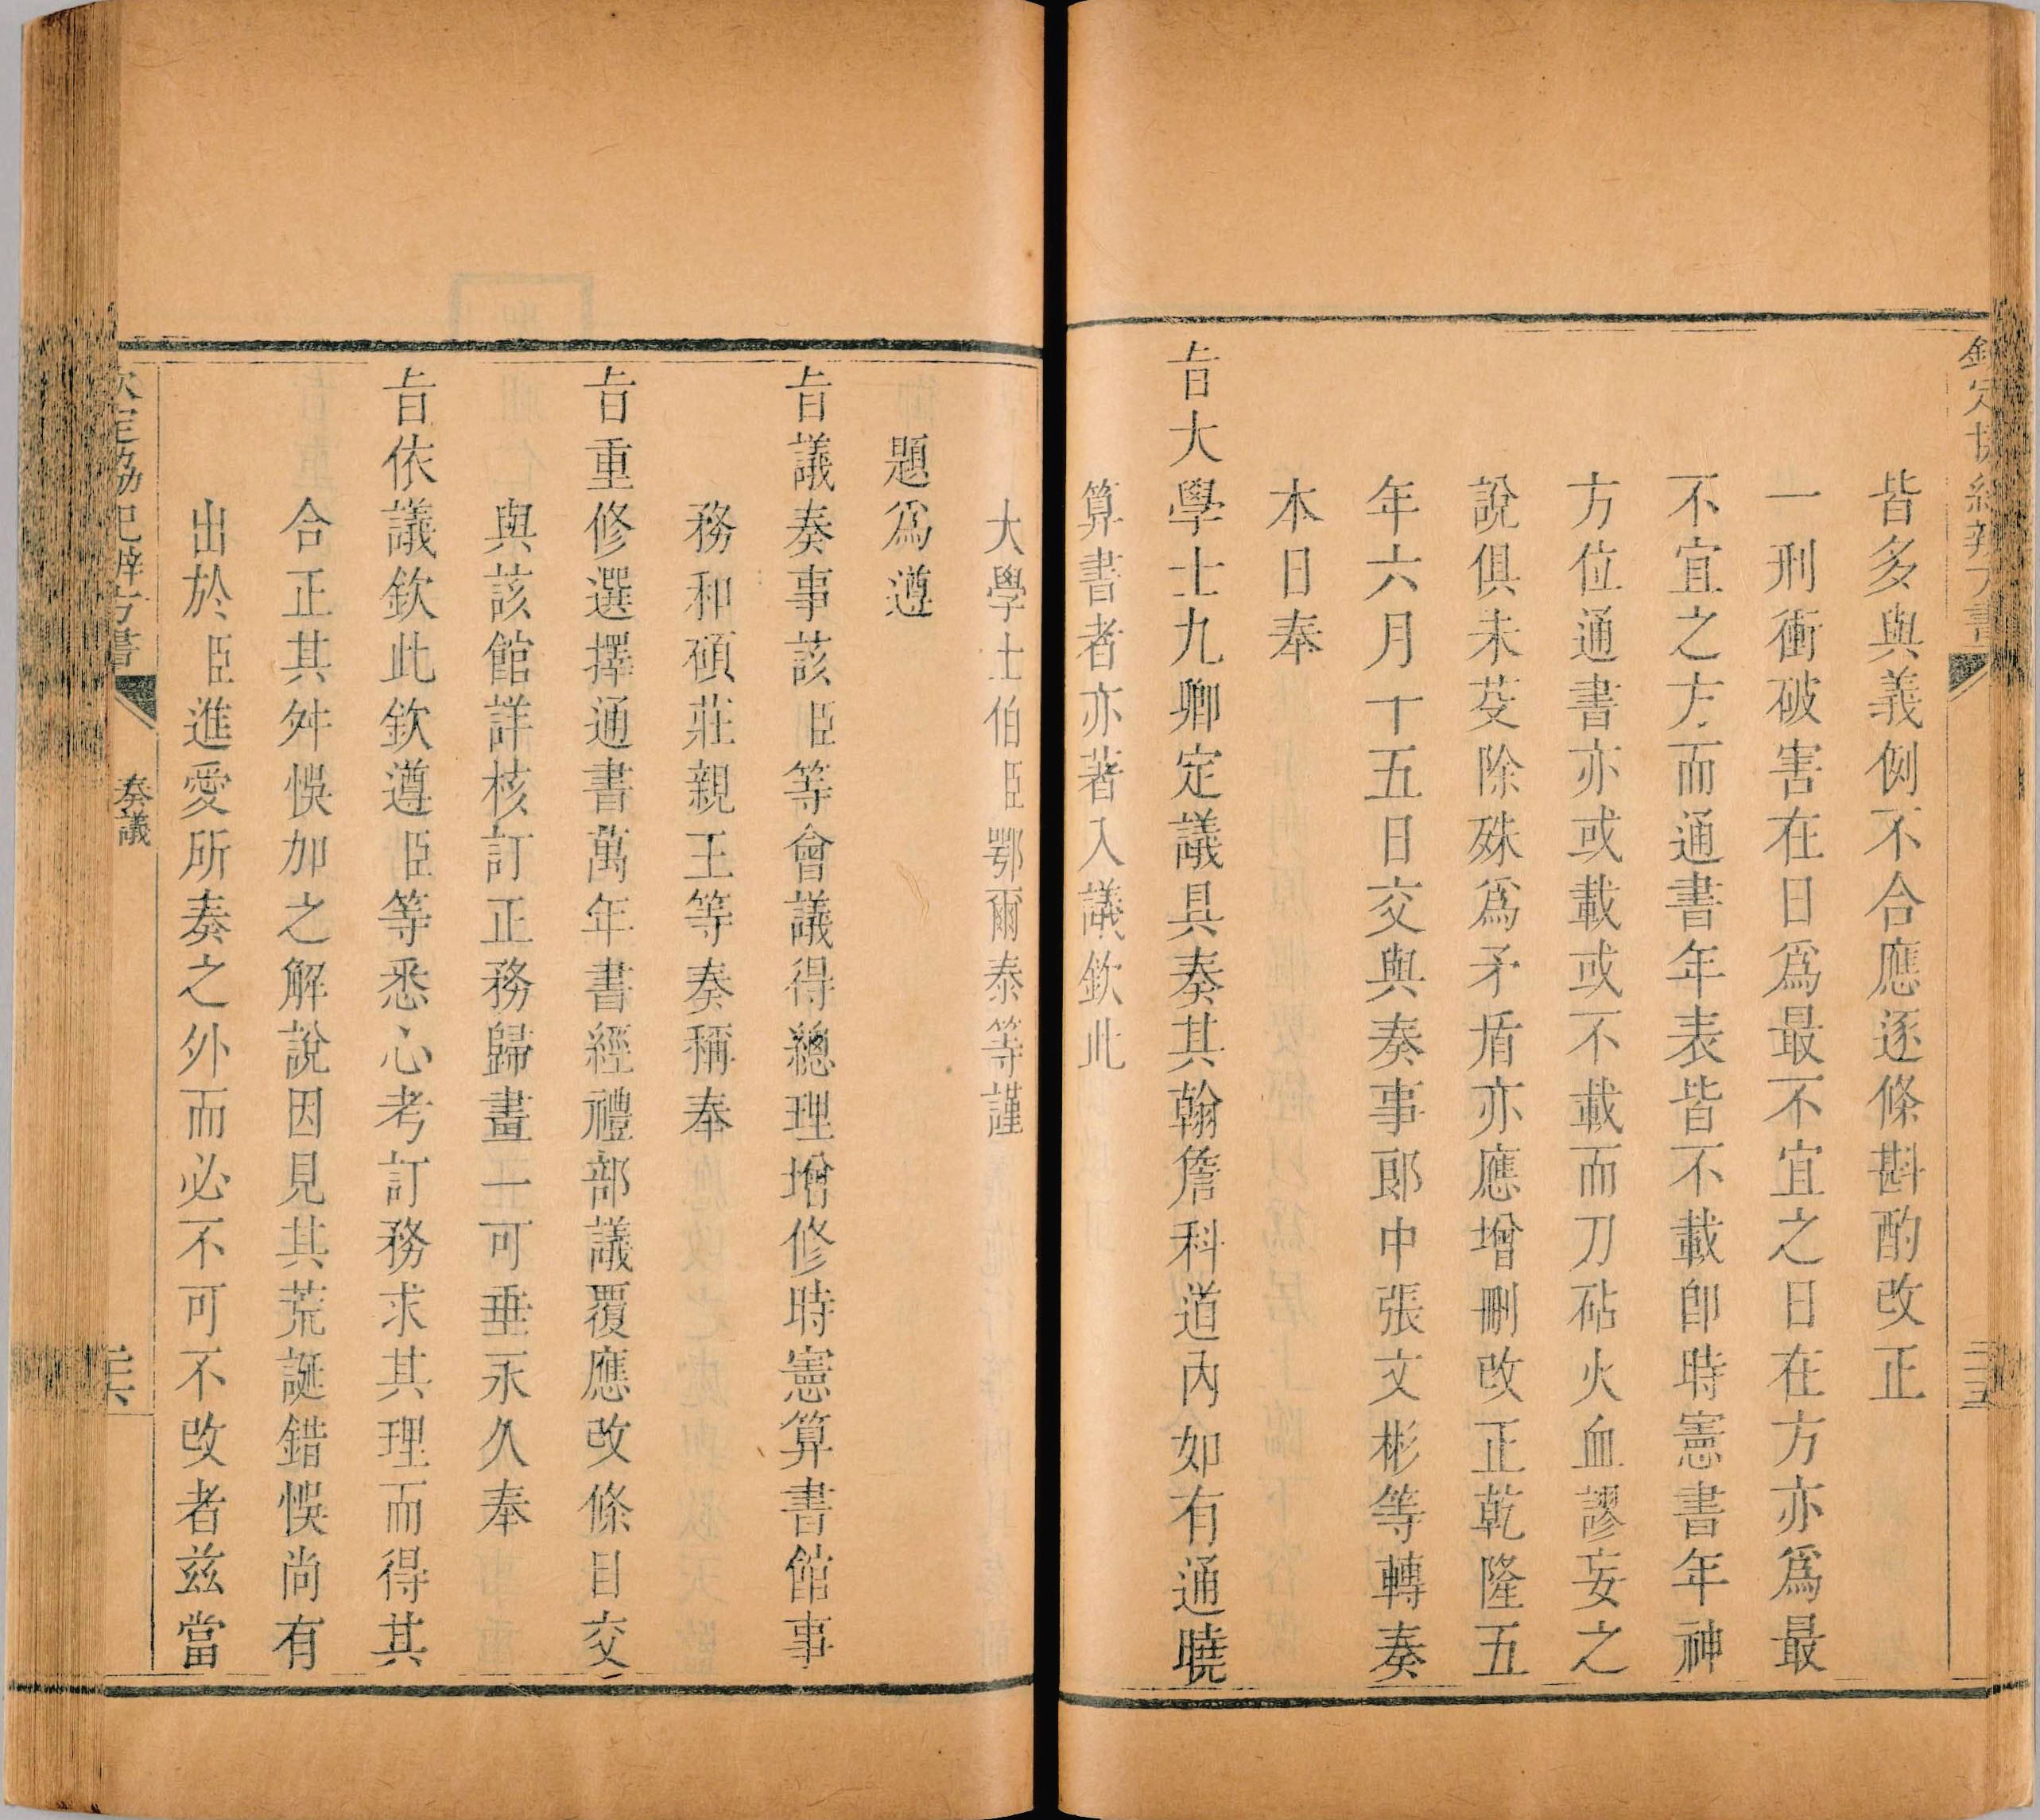 欽定協紀辨方書
三十五
皆多與義例不合應逐條斟酌改正
一刑衝破害在日爲最不宜之日在方亦爲最
不宜之方而通書年表皆不載卽時憲書年神
方位通書亦或載或不載而刀砧火血謬妄之
說俱未芟除殊爲矛盾亦應增刪改正乾隆五
年六月十五日交與奏事郎中張文彬等轉奏
本日奉
旨大學士九卿定議具奏其翰詹科道內如有通曉
算書者亦著入議欽此
大學士伯臣鄂爾泰等謹
題爲遵
旨議奏事該臣等會議得總理增修時憲算書館事
務和碩莊親王等奏稱奉
旨重修選擇通書萬年書經禮部議覆應改條目交
與該館詳核訂正務歸畫一可垂永久奉
旨依議欽此欽遵臣等悉心考訂務求其理而得其
合正其舛悞加之解說因見其荒誕錯悞尚有
出於臣進愛所奏之外而必不可不改者茲當
欽定協紀辨方書
奏議